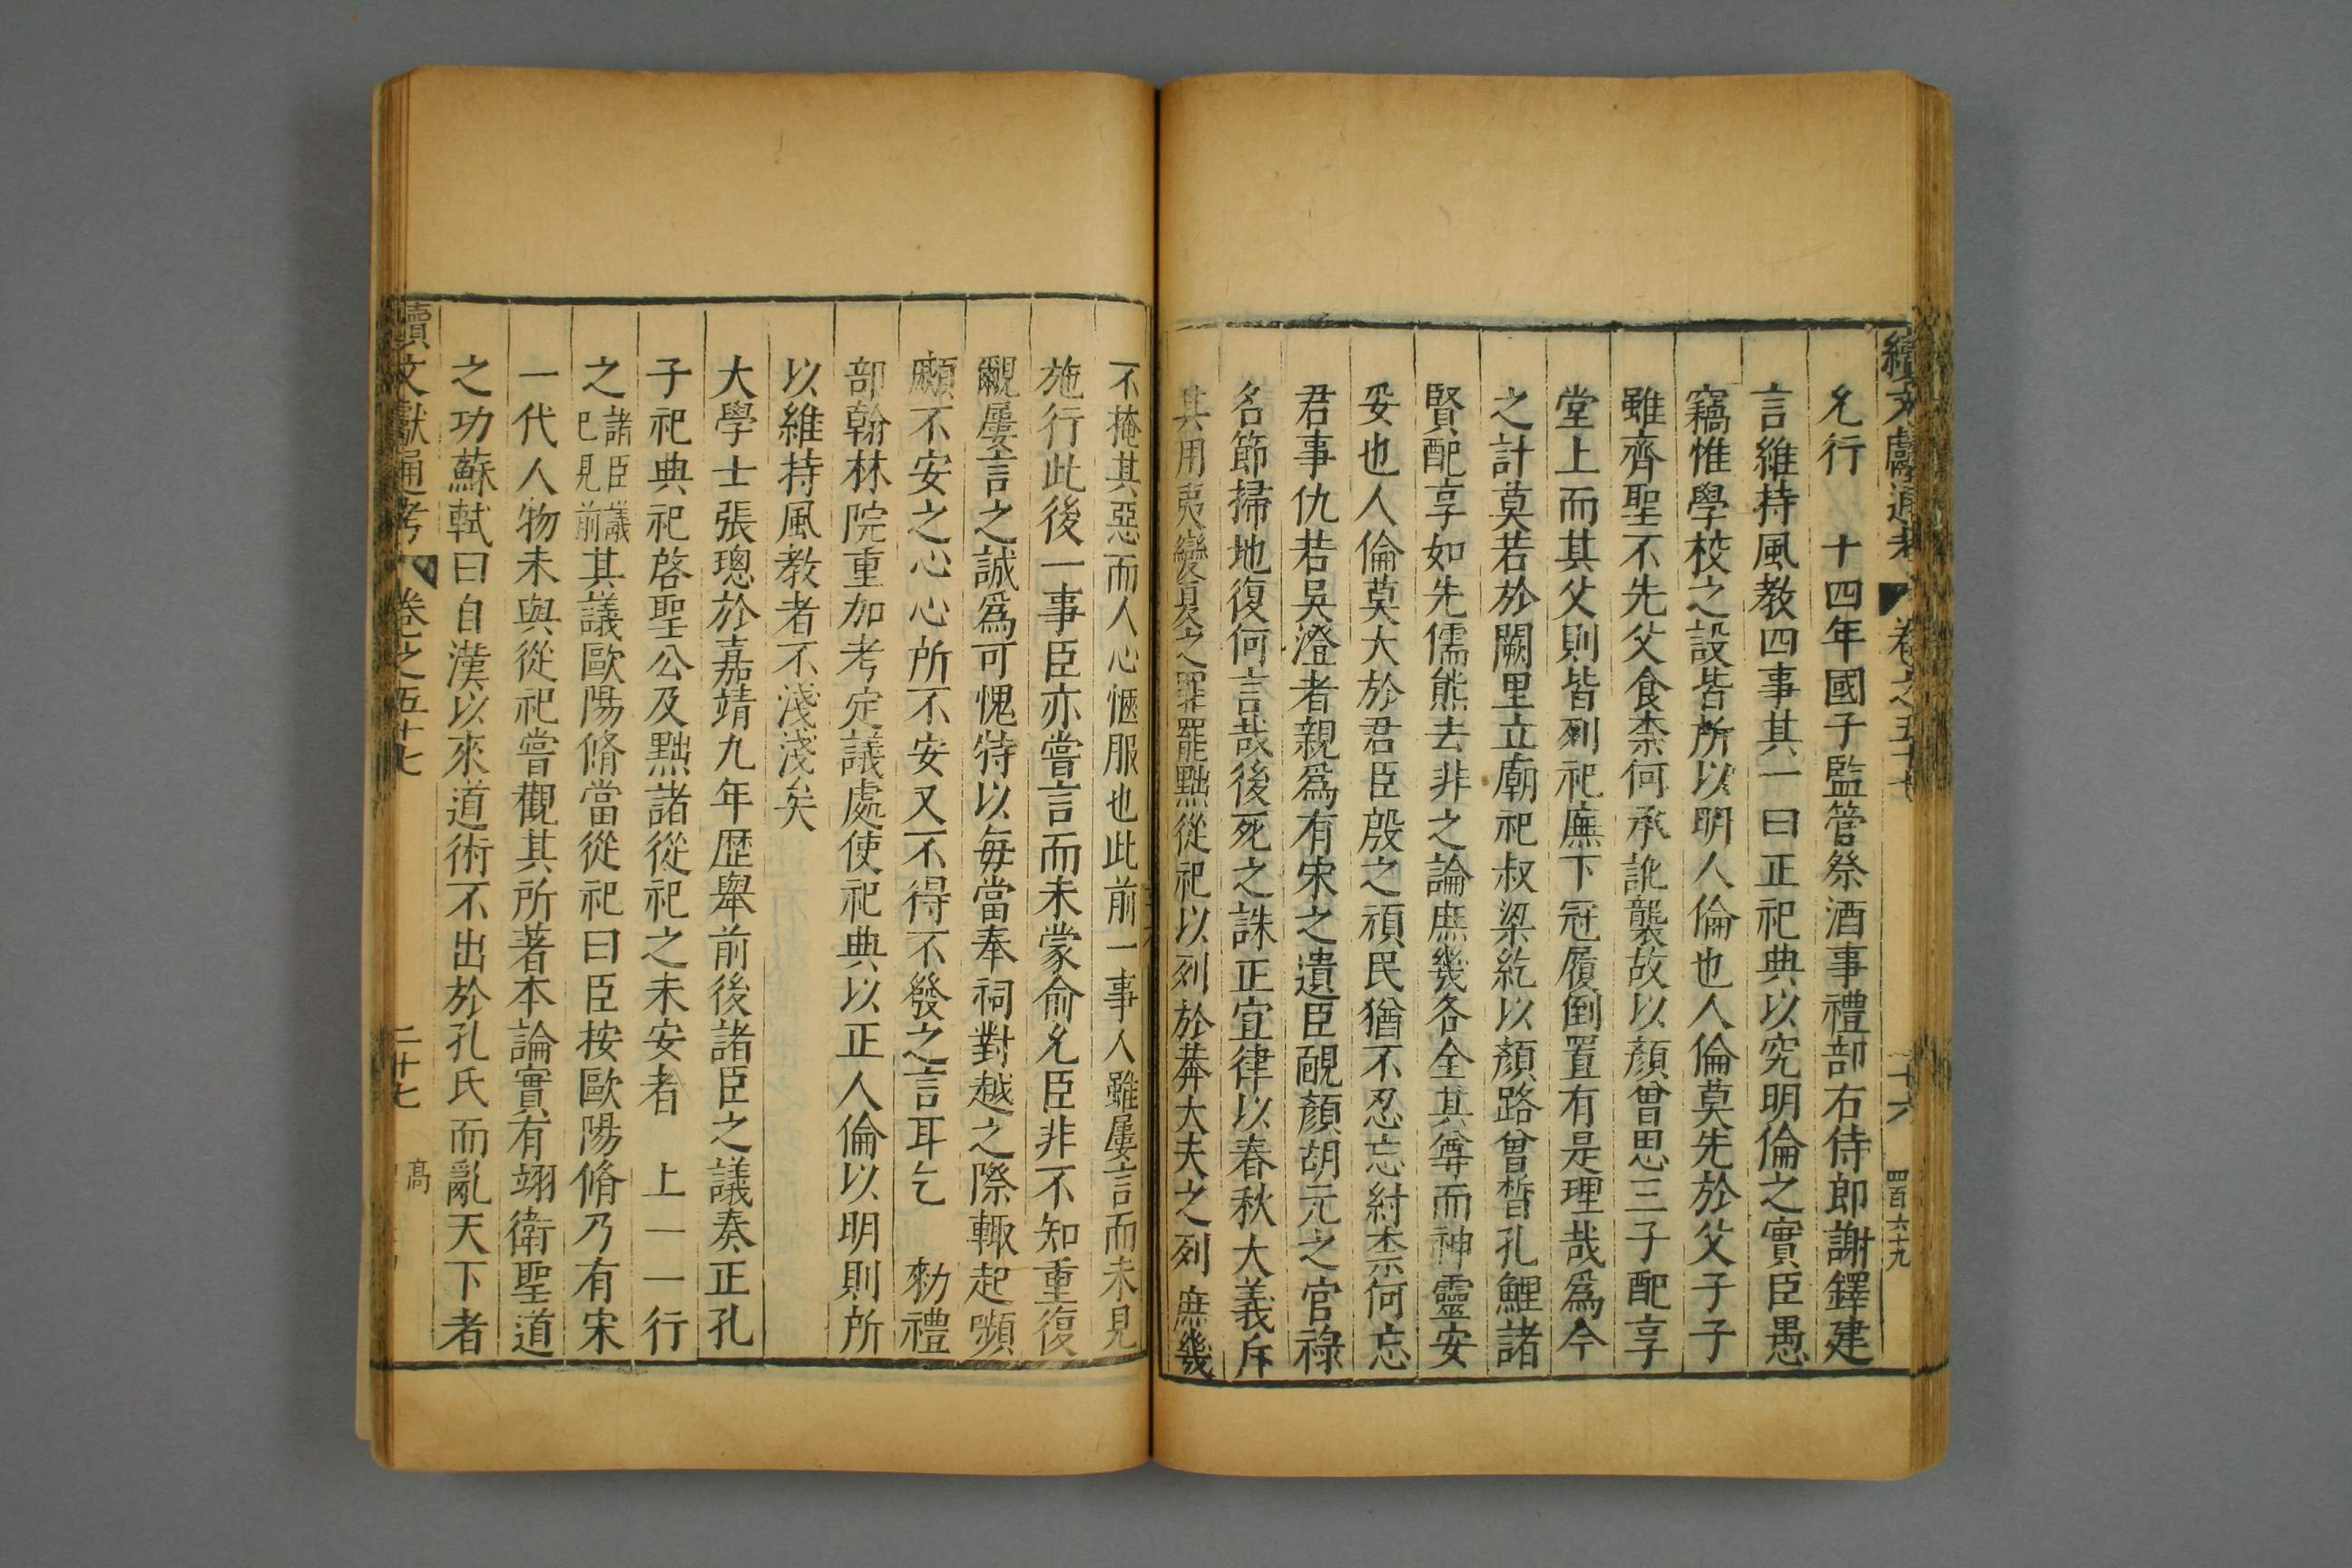 續文獻通考 卷之五十七 二十六 四百六十九
允行 十四年國子監管祭酒事禮部右侍郎謝鐸建
言維持風教四事其一曰正祀典以究明倫之實臣愚
竊惟學校之設皆所以明人倫也人倫莫先於父子子
雖齊聖不先父食柰何承訛襲故以顏曾思三子配享
堂上而其父則皆列祀廡下冠履倒置有是理哉爲今
之計莫若於闕里立廟祀叔梁紇以顏路曾晳孔鯉諸
賢配享如先儒熊去非之論庶幾各全其尊而神靈安
妥也人倫莫大於君臣殷之頑民猶不忍忘紂柰何忘
君事仇若吳澄者親爲有宋之遺臣覥顏胡元之官祿
名節掃地復何言哉後死之誅正宜律以春秋大義斥
其用夷變夏之罪罷黜從祀以列於莾大夫之列庶幾
不掩其惡而人心愜服也此前一事人雖屢言而未見
施行此後一事臣亦嘗言而未蒙俞允臣非不知重復
覼屢言之誠爲可愧特以每當奉祠對越之際輙起嚬
顣不安之心心所不安又不得不發之言耳乞 勑禮
部翰林院重加考定議處使祀典以正人倫以明則所
以維持風教者不淺淺矣
大學士張璁於嘉靖九年歷舉前後諸臣之議奏正孔
子祀典祀啓聖公及黜諸從祀之未安者 上一一行
之諸臣議巳見前其議歐陽脩當從祀曰臣按歐陽脩乃有宋
一代人物未與從祀嘗觀其所著本論實有翊衛聖道
之功蘇軾曰自漢以來道術不出於孔氏而亂天下者
續文獻通考 卷之五十七 二十七 高